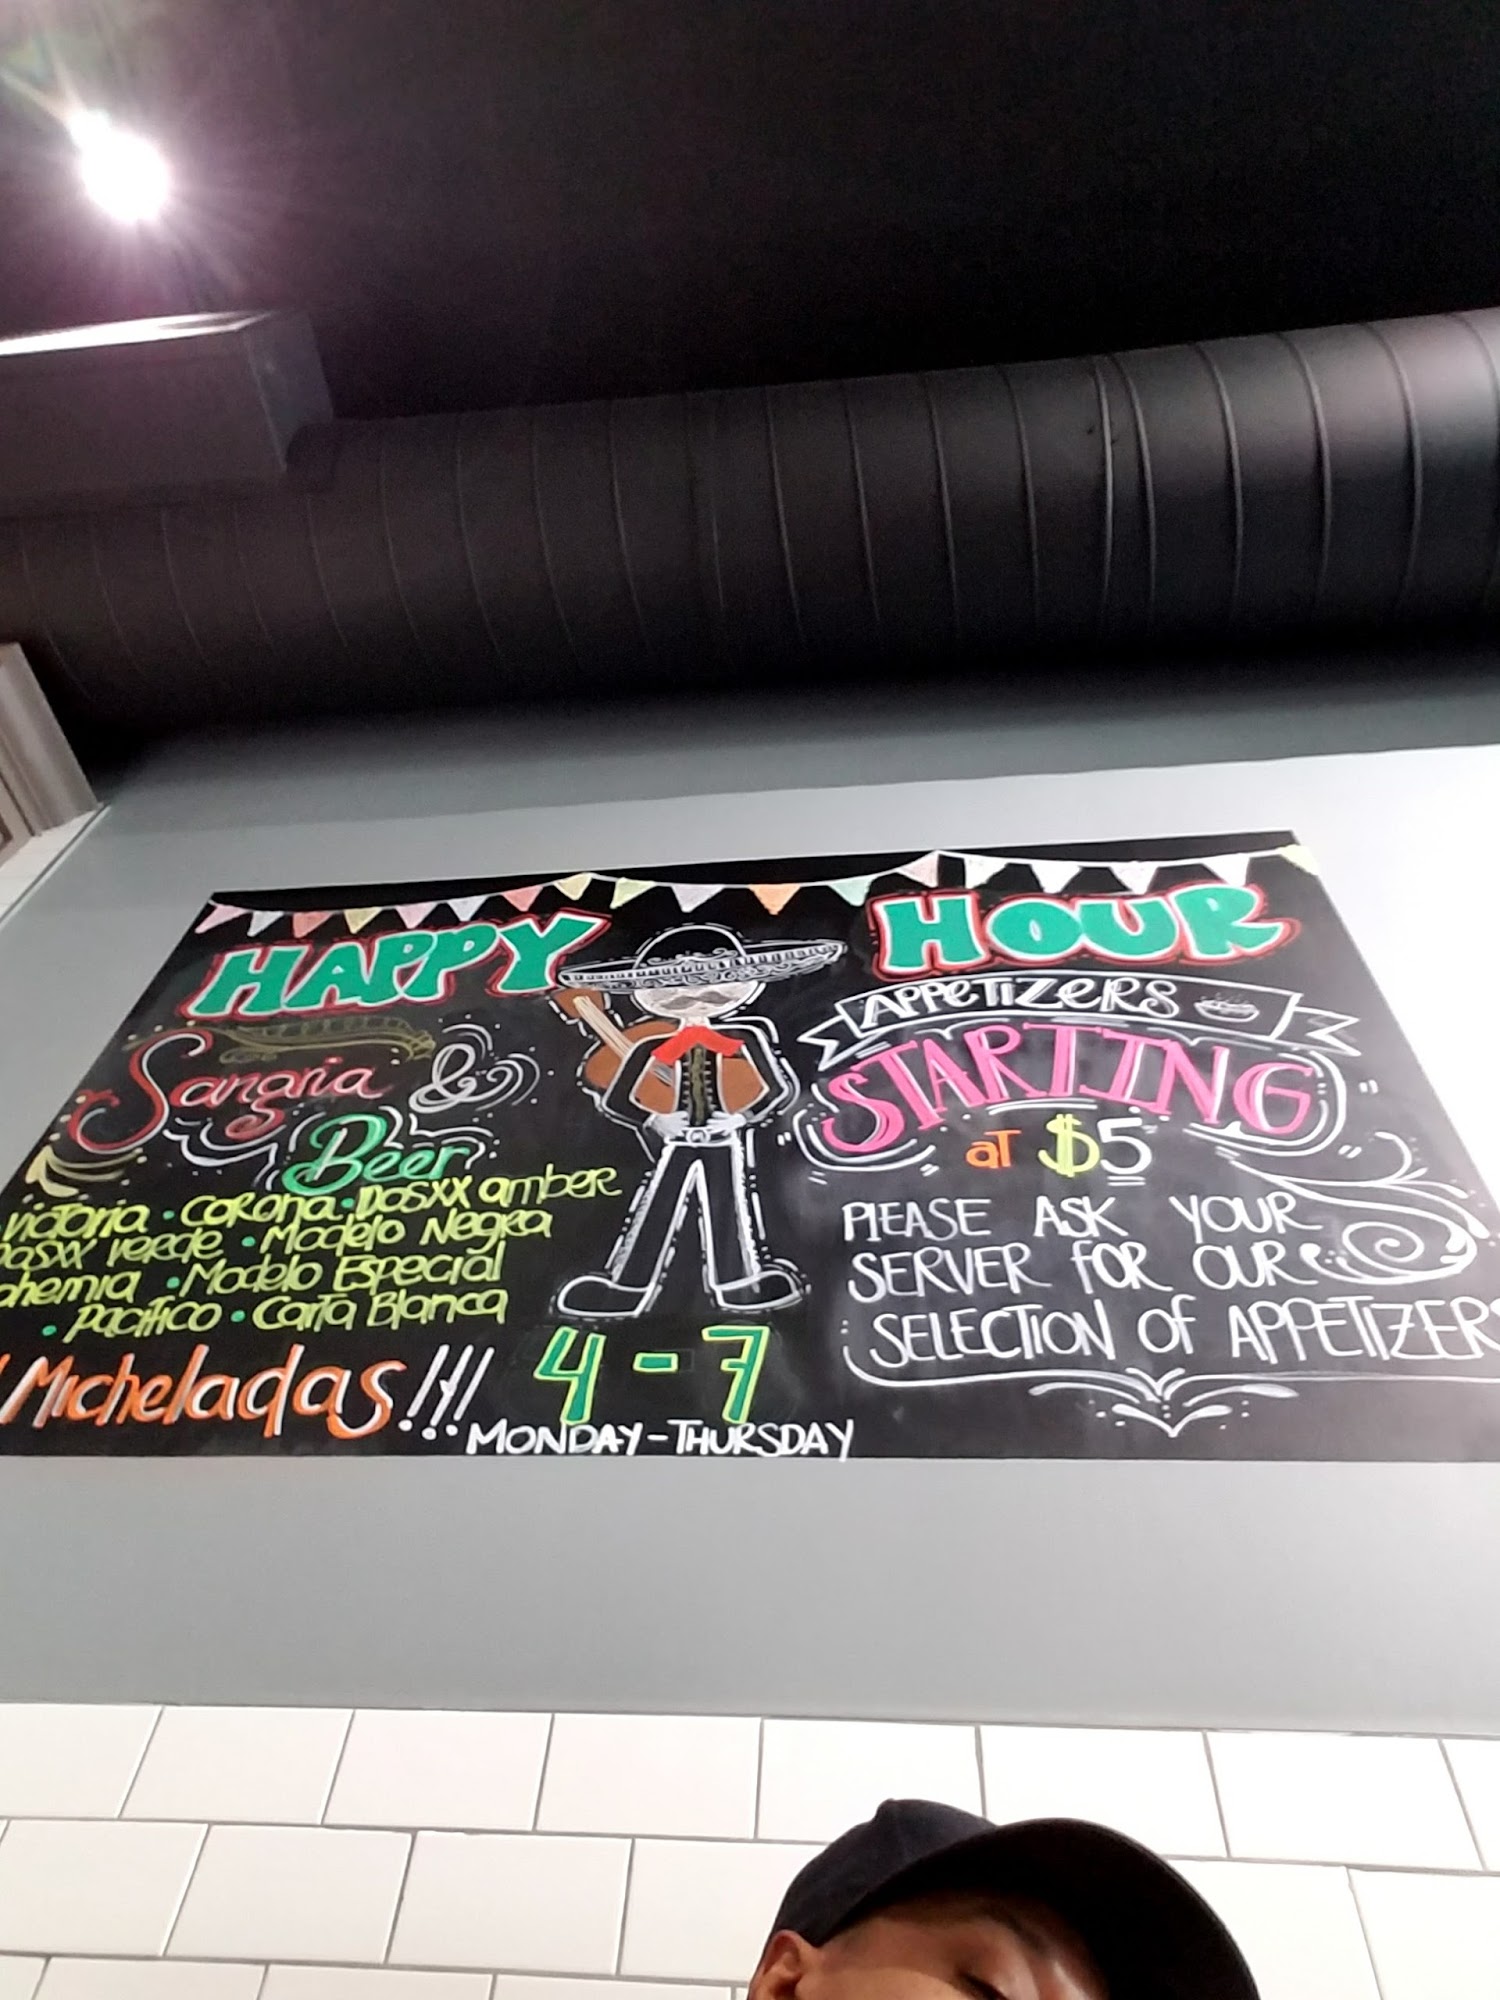 HAPPY HOUR
Sangria &
Beer
Victoria • Corona • DosXX amber
DosXX verde • Modelo Negra
ohemia • Modelo Especial
• Pacifico • Carta Blanca
Micheladas!!!
4 - 7
MONDAY - THURSDAY
APPETIZERS
STARTING
at $5
PLEASE ASK YOUR
SERVER FOR OUR
SELECTION of APPETIZERS